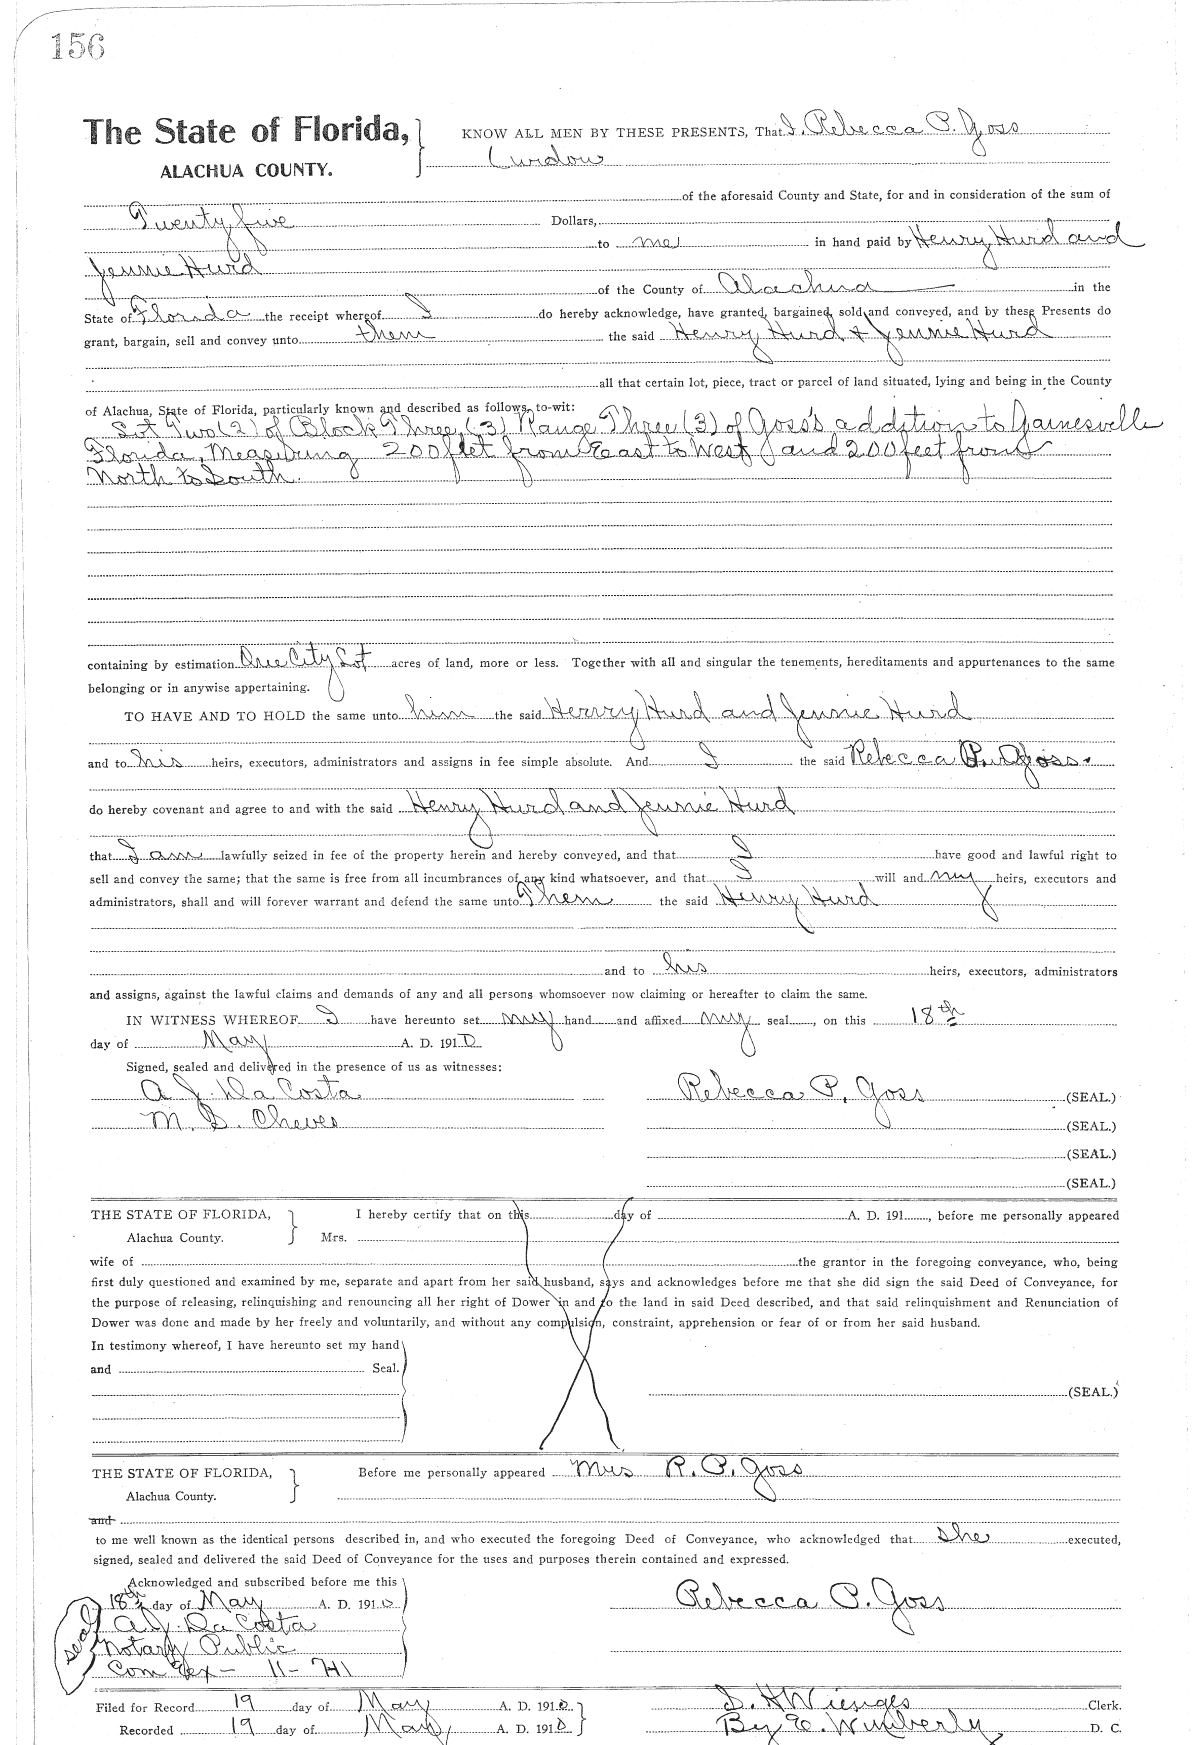 156
The State of Florida, KNOW ALL MEN BY THESE PRESENTS, That I, Rebecca P. Goss
ALACHUA COUNTY.
of the aforesaid County and State, for and in consideration of the sum of
Twenty five Dollars,
to me in hand paid by Henry Hurd and
Jennie Hurd
of the County of Alachua in the
State of Florida the receipt whereof I do hereby acknowledge, have granted, bargained, sold and conveyed, and by these Presents do
grant, bargain, sell and convey unto them the said Henry Hurd & Jennie Hurd
all that certain lot, piece, tract or parcel of land situated, lying and being in the County
of Alachua, State of Florida, particularly known and described as follows, to-wit:
Lot Two (2) of Block Three, (3) Range Three (3) of Goss's addition to Gainesville
Florida, Measuring 200 feet from East to West and 200 feet from
North to South.
containing by estimation One City Lot acres of land, more or less. Together with all and singular the tenements, hereditaments and appurtenances to the same
belonging or in anywise appertaining.
TO HAVE AND TO HOLD the same unto him the said Henry Hurd and Jennie Hurd
and to his heirs, executors, administrators and assigns in fee simple absolute. And I the said Rebecca P. Goss.
do hereby covenant and agree to and with the said Henry Hurd and Jennie Hurd
that I am lawfully seized in fee of the property herein and hereby conveyed, and that I have good and lawful right to
sell and convey the same; that the same is free from all incumbrances of any kind whatsoever, and that I will and my heirs, executors and
administrators, shall and will forever warrant and defend the same unto Them the said Henry Hurd
and to his heirs, executors, administrators
and assigns, against the lawful claims and demands of any and all persons whomsoever now claiming or hereafter to claim the same.
IN WITNESS WHEREOF I have hereunto set my hand and affixed my seal, on this 18th
day of May A. D. 1910
Signed, sealed and delivered in the presence of us as witnesses:
A. J. Da Costa Rebecca P. Goss (SEAL.)
M. S. Cheves (SEAL.)
(SEAL.)
(SEAL.)
THE STATE OF FLORIDA, I hereby certify that on this day of A. D. 191, before me personally appeared
Alachua County. Mrs.
wife of the grantor in the foregoing conveyance, who, being
first duly questioned and examined by me, separate and apart from her said husband, says and acknowledges before me that she did sign the said Deed of Conveyance, for
the purpose of releasing, relinquishing and renouncing all her right of Dower in and to the land in said Deed described, and that said relinquishment and Renunciation of
Dower was done and made by her freely and voluntarily, and without any compulsion, constraint, apprehension or fear of or from her said husband.
In testimony whereof, I have hereunto set my hand
and Seal.
(SEAL.)
THE STATE OF FLORIDA, Before me personally appeared Mrs R. P. Goss
Alachua County.
and
to me well known as the identical persons described in, and who executed the foregoing Deed of Conveyance, who acknowledged that she executed,
signed, sealed and delivered the said Deed of Conveyance for the uses and purposes therein contained and expressed.
Acknowledged and subscribed before me this
18th day of May A. D. 1910 Rebecca P. Goss
seal A. J. Da Costa
Notary Public
Com Ex- 11-
Filed for Record 19 day of May A. D. 1910 S. H Wienges Clerk.
Recorded 19 day of May, A. D. 1910 By E. Wimberly, D. C.